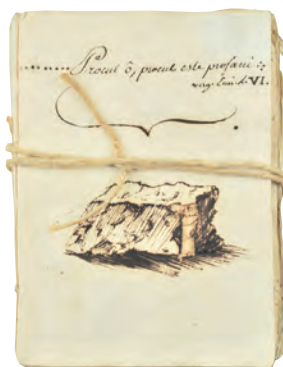 Procul ô, procul este profani :
virg. Æneid. VI.